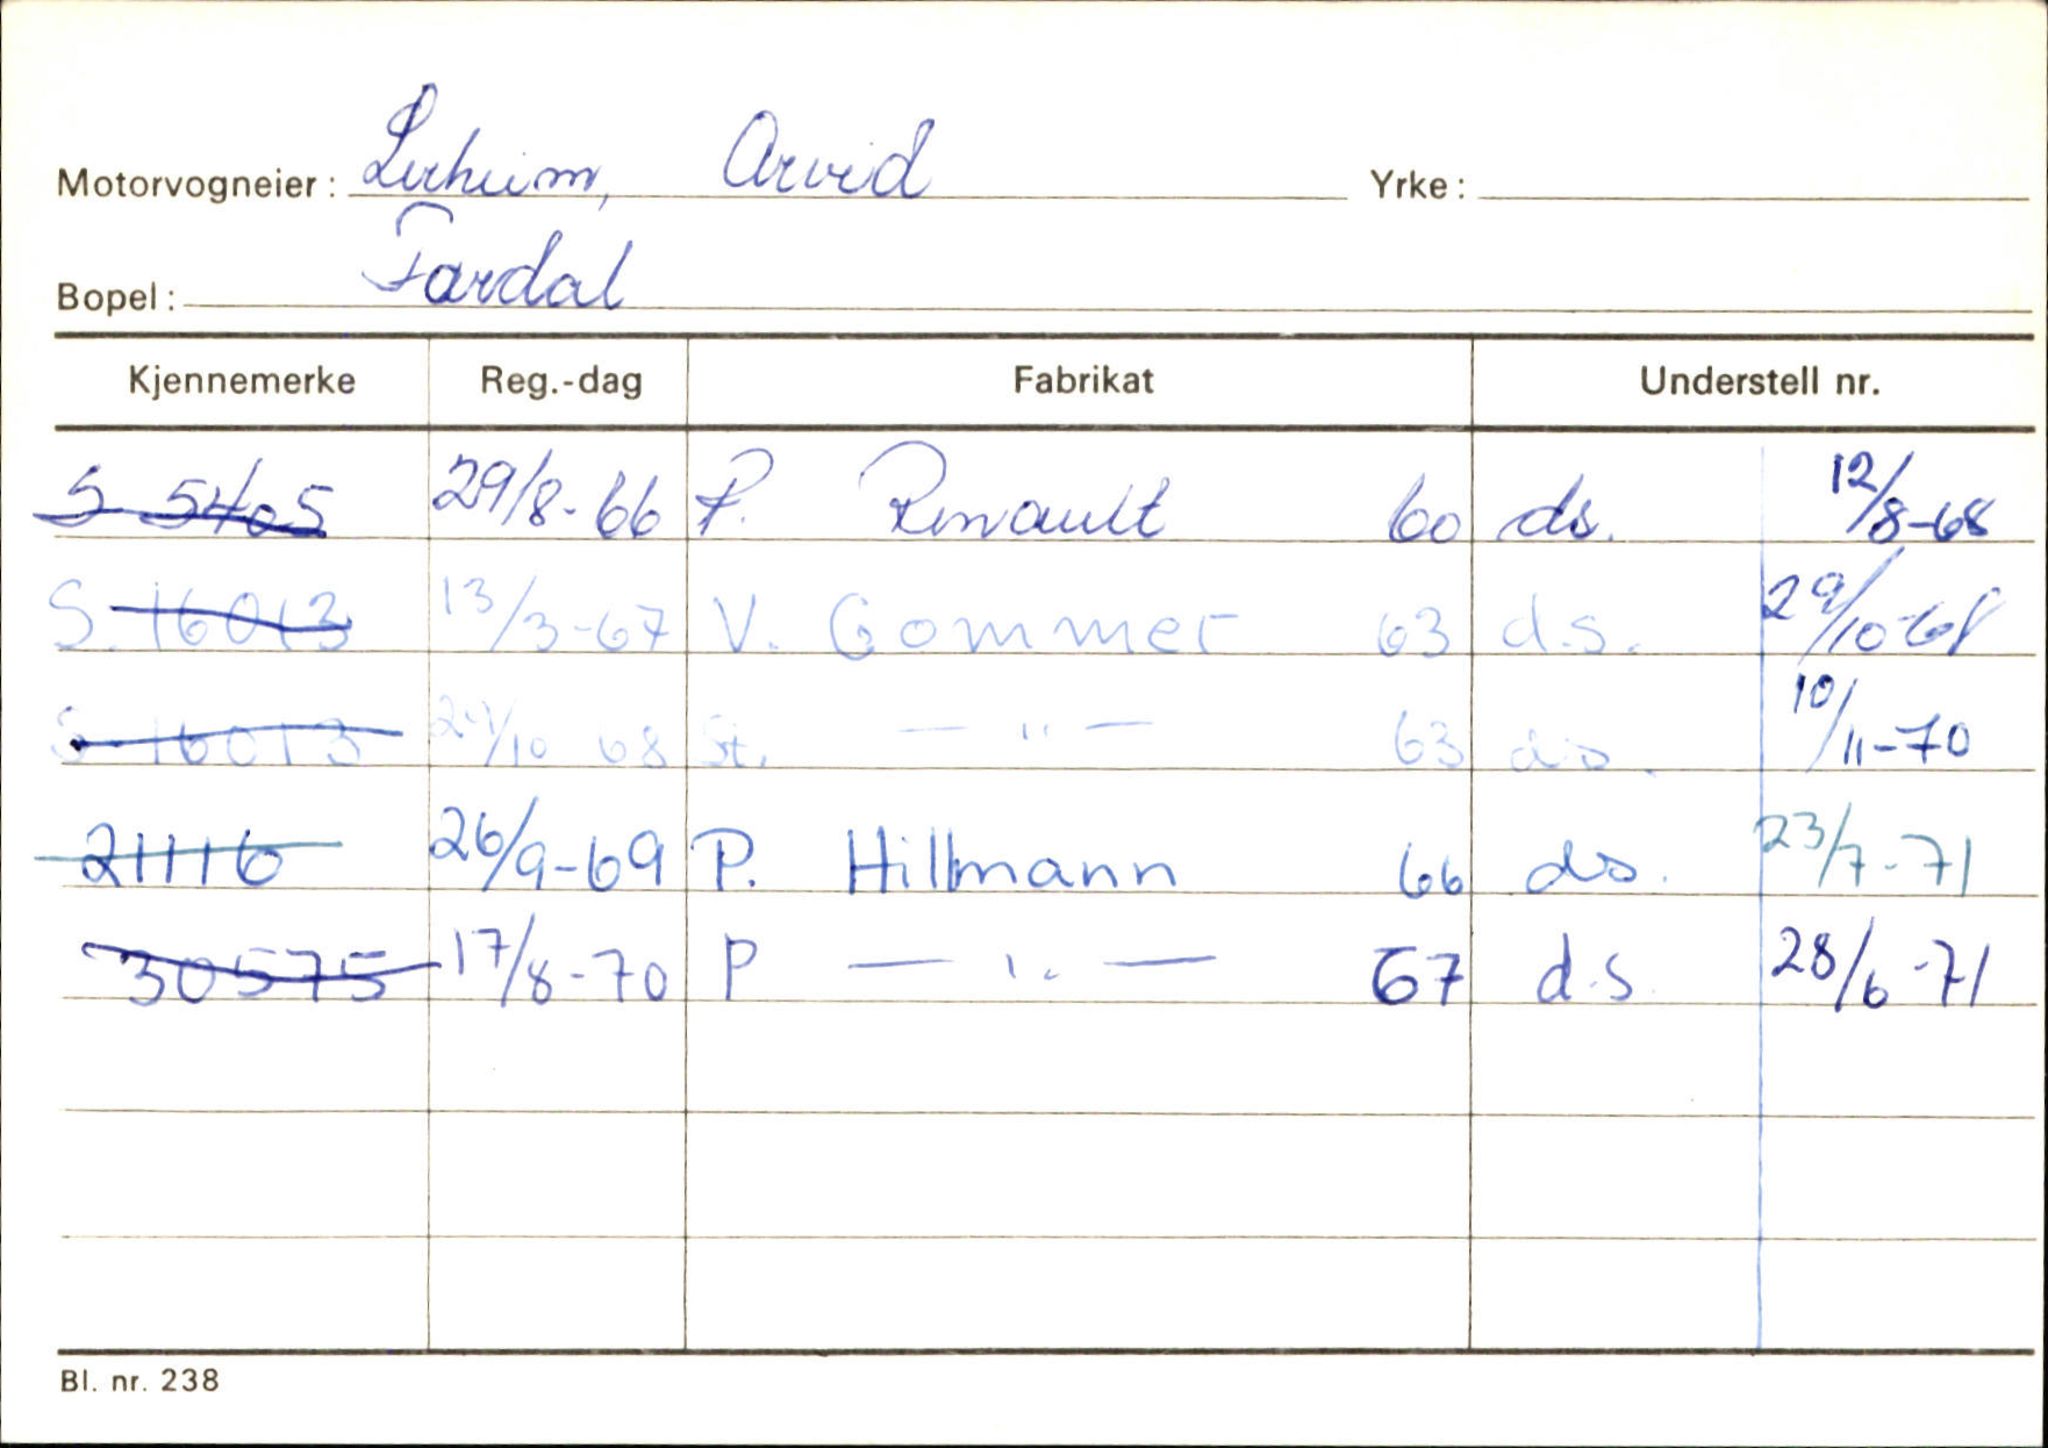 Motorvogneier: Lerheim, Arvid Yrke:
Bopel: Fardal
Kjennemerke Reg.-dag Fabrikat Understell nr.
S 5405 29/8-66 P. Renault 60 ds. 12/8-68
S. 16013 13/3-67 V. Commer 63 d.s. 29/10-68
S 16013 29/10 68 St. — " — 63 ds. 10/11-70
21116 26/9-69 P. Hillmann 66 ds. 23/7-71
30575 17/8-70 P — " — 67 d.s. 28/6-71
Bl. nr. 238